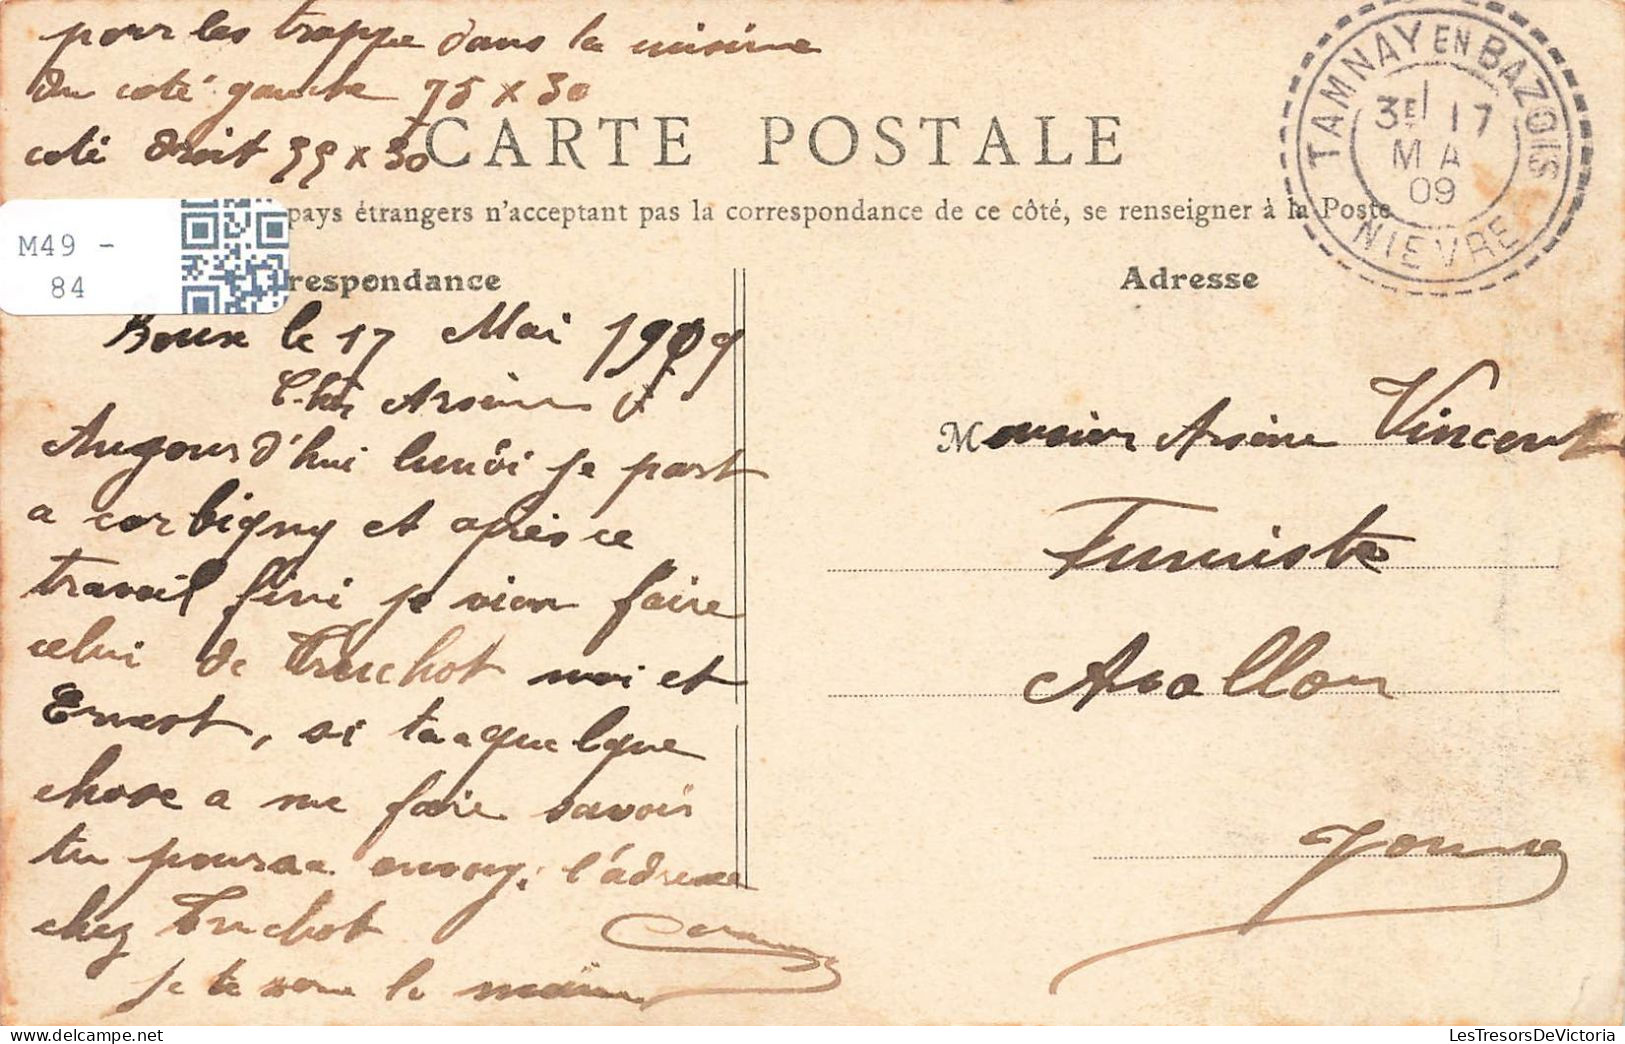 pour les trappe dans la cuisine
du coté gauche 75 x 30
coté droit 35 x 30
CARTE POSTALE
pays étrangers n'acceptant pas la correspondance de ce côté, se renseigner à la Poste
M49 -
84
respondance
Adresse
TAMNAY EN BAZOIS
3E 17
MA
09
NIEVRE
le 17 Mai 1909
Cher Arsène
Augours d'hui lundi je part
a corbigny et après ce
travail fini je vien faire
celui de Truchot moi et
Ernest, si ta quelque
chose a me faire savoir
tu pouraa envoy. l'adresse
chez Truchot
je te serre la main
Monsieur Arsène Vincent
Fumiste
Avallon
Yonne
LesTresorsDeVictoria